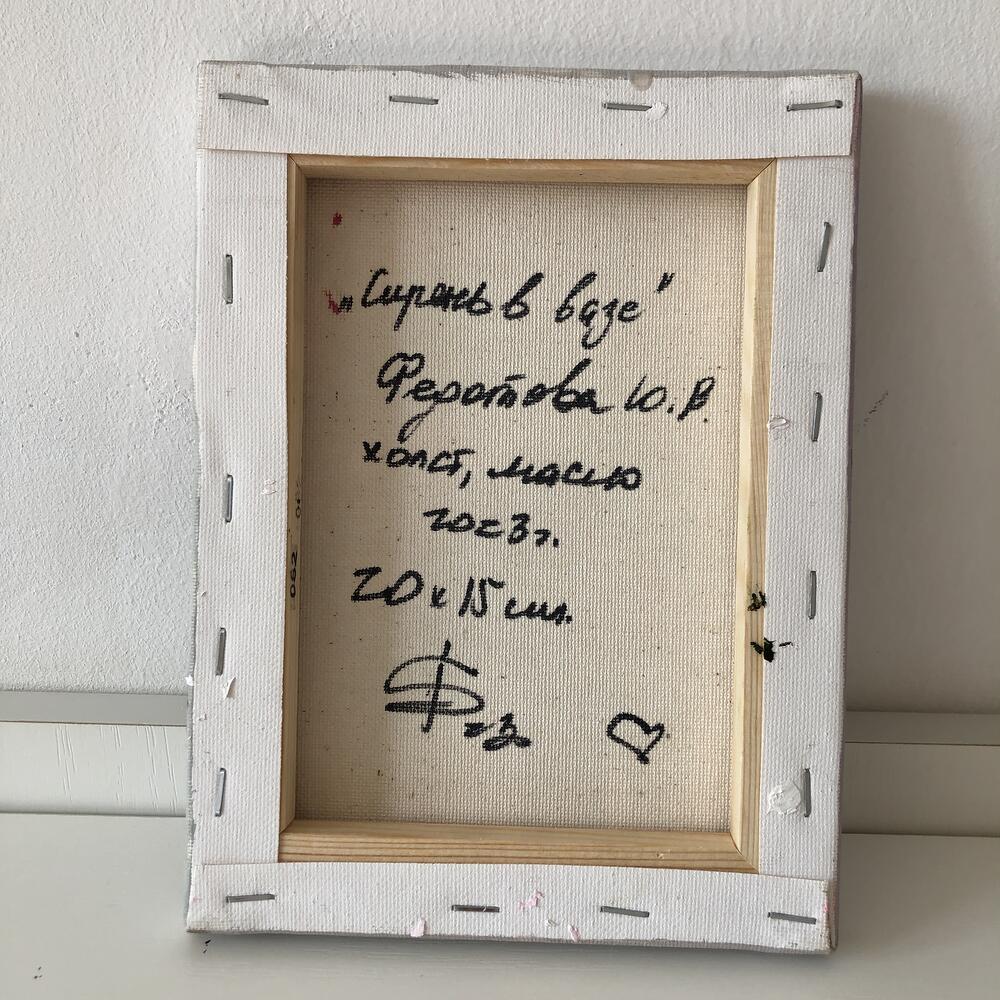 „Сирень в вазе"
Федотова Ю.В.
холст, масло
2023г.
20х15 см.
23
062